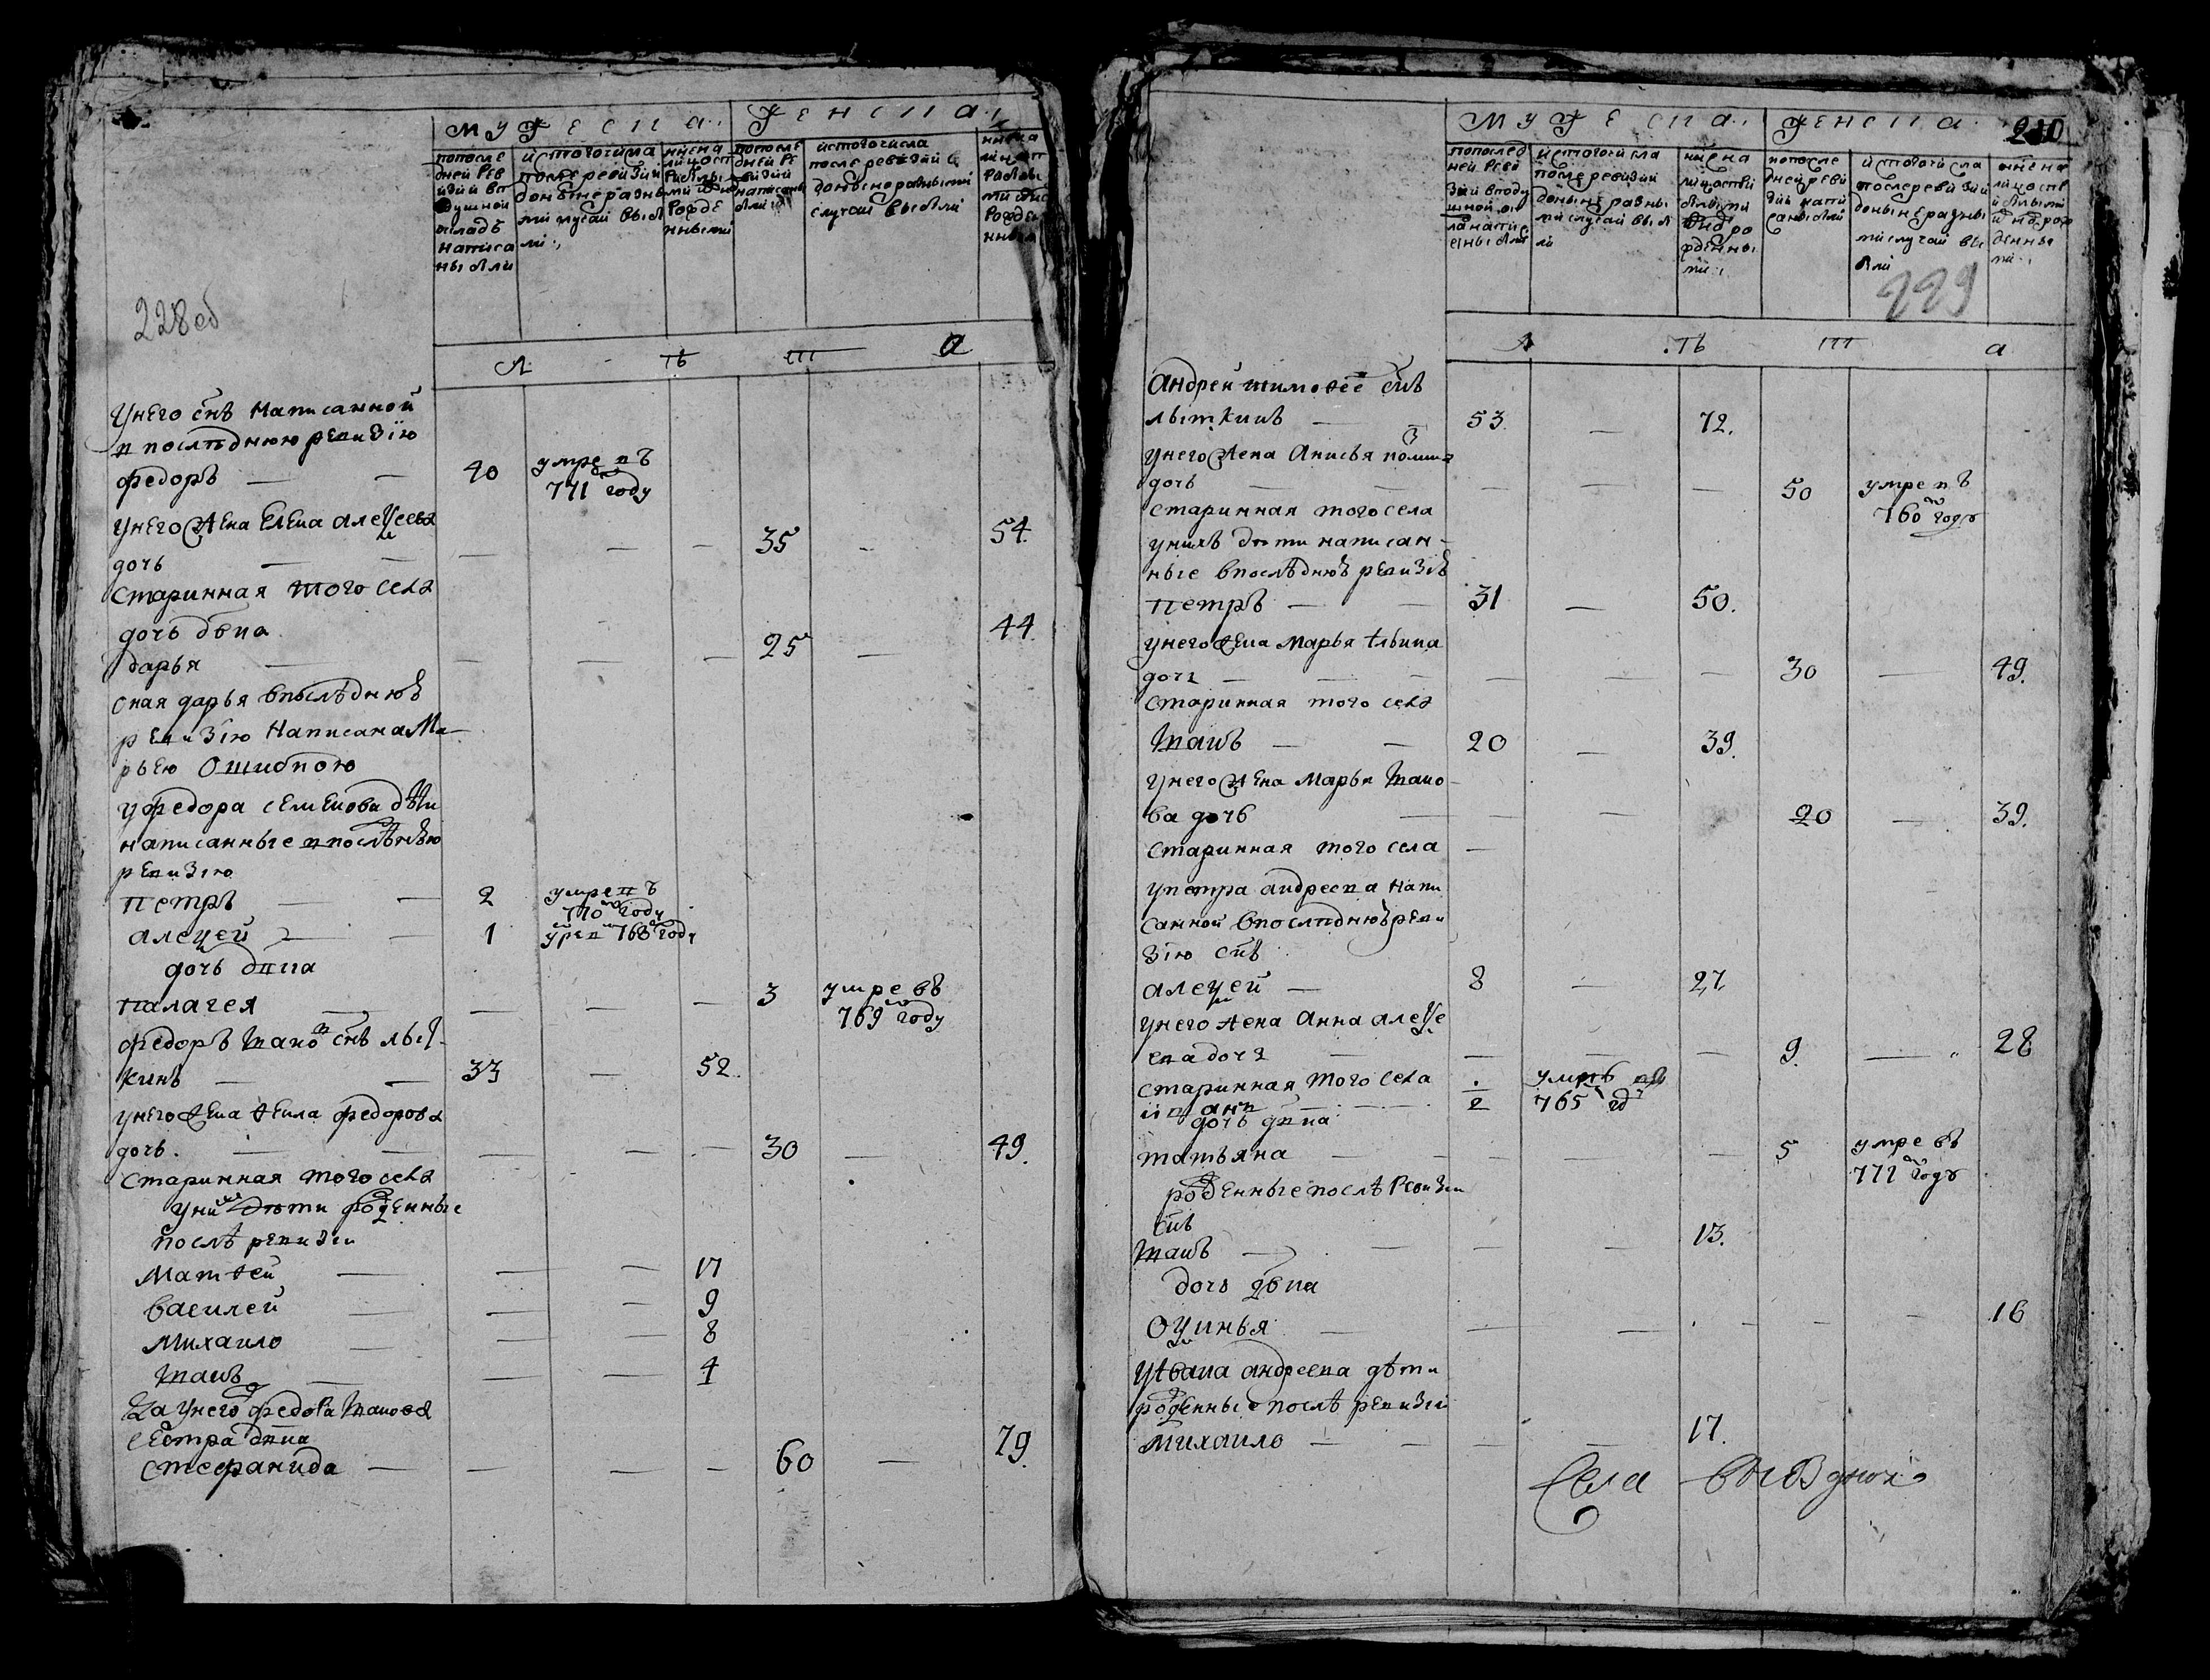 мужеска
женска
попосле
дней рев
изии вп
душной
окладъ
написа
ны были
истогочисла
после ревизии
доныне разны
ми случаи выбы
ли
ныне на
лицо
рожде
нными
попосле
дней ре
визии
написаны
были
истогочисла
после ревизии
доныне разными
случаи выбыли
ныне на
рожде
нными
228об
лѣта
Унего снъ написанной
в последнюю ревизию
федоръ 40 умре въ
771 году
Унего жена Елена алеѯеева
дочь 35 54
старинная того села
дочь девка
дарья 25 44
оная дарья впослѣднюю
ревизию написана Ма-
рьею ошибкою
уфедора семенова дѣти
написанные впослѣднюю
ревизию
петръ 2 умре въ
770 году
алеѯей 1 умре 768 году
дочь девка
палагея 3 умре въ
769 году
федоръ Ивановъ снъ лыт-
кинъ 33 52
унего жена Фекла федорова
дочь 30 49
старинная того села
уних дѣти рожденные
послѣ ревизии
Матѳей 17
василей 9
михаило 8
Иванъ 4
Да унего федора Иванова
сестра девка
стефанида 60 79
мужеска
женска
210
попослед
ней реви
зии вподу
шной ок
ладнапис
аны были
истогочисла
после ревизии
доныне разны
ми случаи выбы
ли
ныне на
лицо
рожденны
ми
попосле
дней реви
зии напи
саны были
истогочисла
после ревизии
доныне разны
ми случаи вы
были
ныне на
рож
денны
ми
229
лѣта
Андрей тимоѳеев снъ
лыткинъ 53 72
унего жена Анисья
дочь 50 умре въ
760 году
старинная того села
унихъ дѣти написан-
ные впослѣднюю ревизию
петръ 31 50
унего жена Марья
дочь 30 49
старинная того села
Иванъ 20 39
унего жена Марья Ивано
ва дочь 20 39
старинная того села
упетра андреева напи
санной впоследнюю реви
зию снъ
алеѯей 8 27
унего жена Анна алеѯе
ева дочь 9 28
старинная того села
иван 2 умре въ
765 год
дочь девка
татьяна 5 умре въ
771 году
рожденные послѣ ревизии
снъ
Иванъ 13
дочь девка
оѯинья 16
уИвана андреева дѣти
рожденные послѣ ревизии
михаило 17
Села